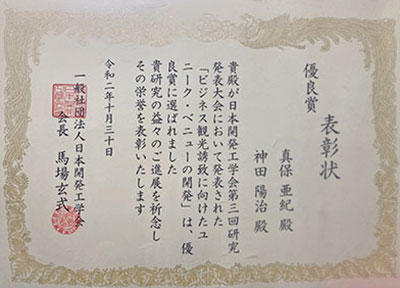 表彰状
優良賞
真保 亜紀殿
神田 陽治殿
貴殿が日本開発工学会第三回研究
発表大会において発表された
「ビジネス観光誘致に向けたユ
ニーク・ベニューの開発」は、優
良賞に選ばれました
貴研究の益々のご進展を祈念し
その栄誉を表彰いたします
令和二年十月三十日
一般社団法人日本開発工学会
会長 馬場玄式